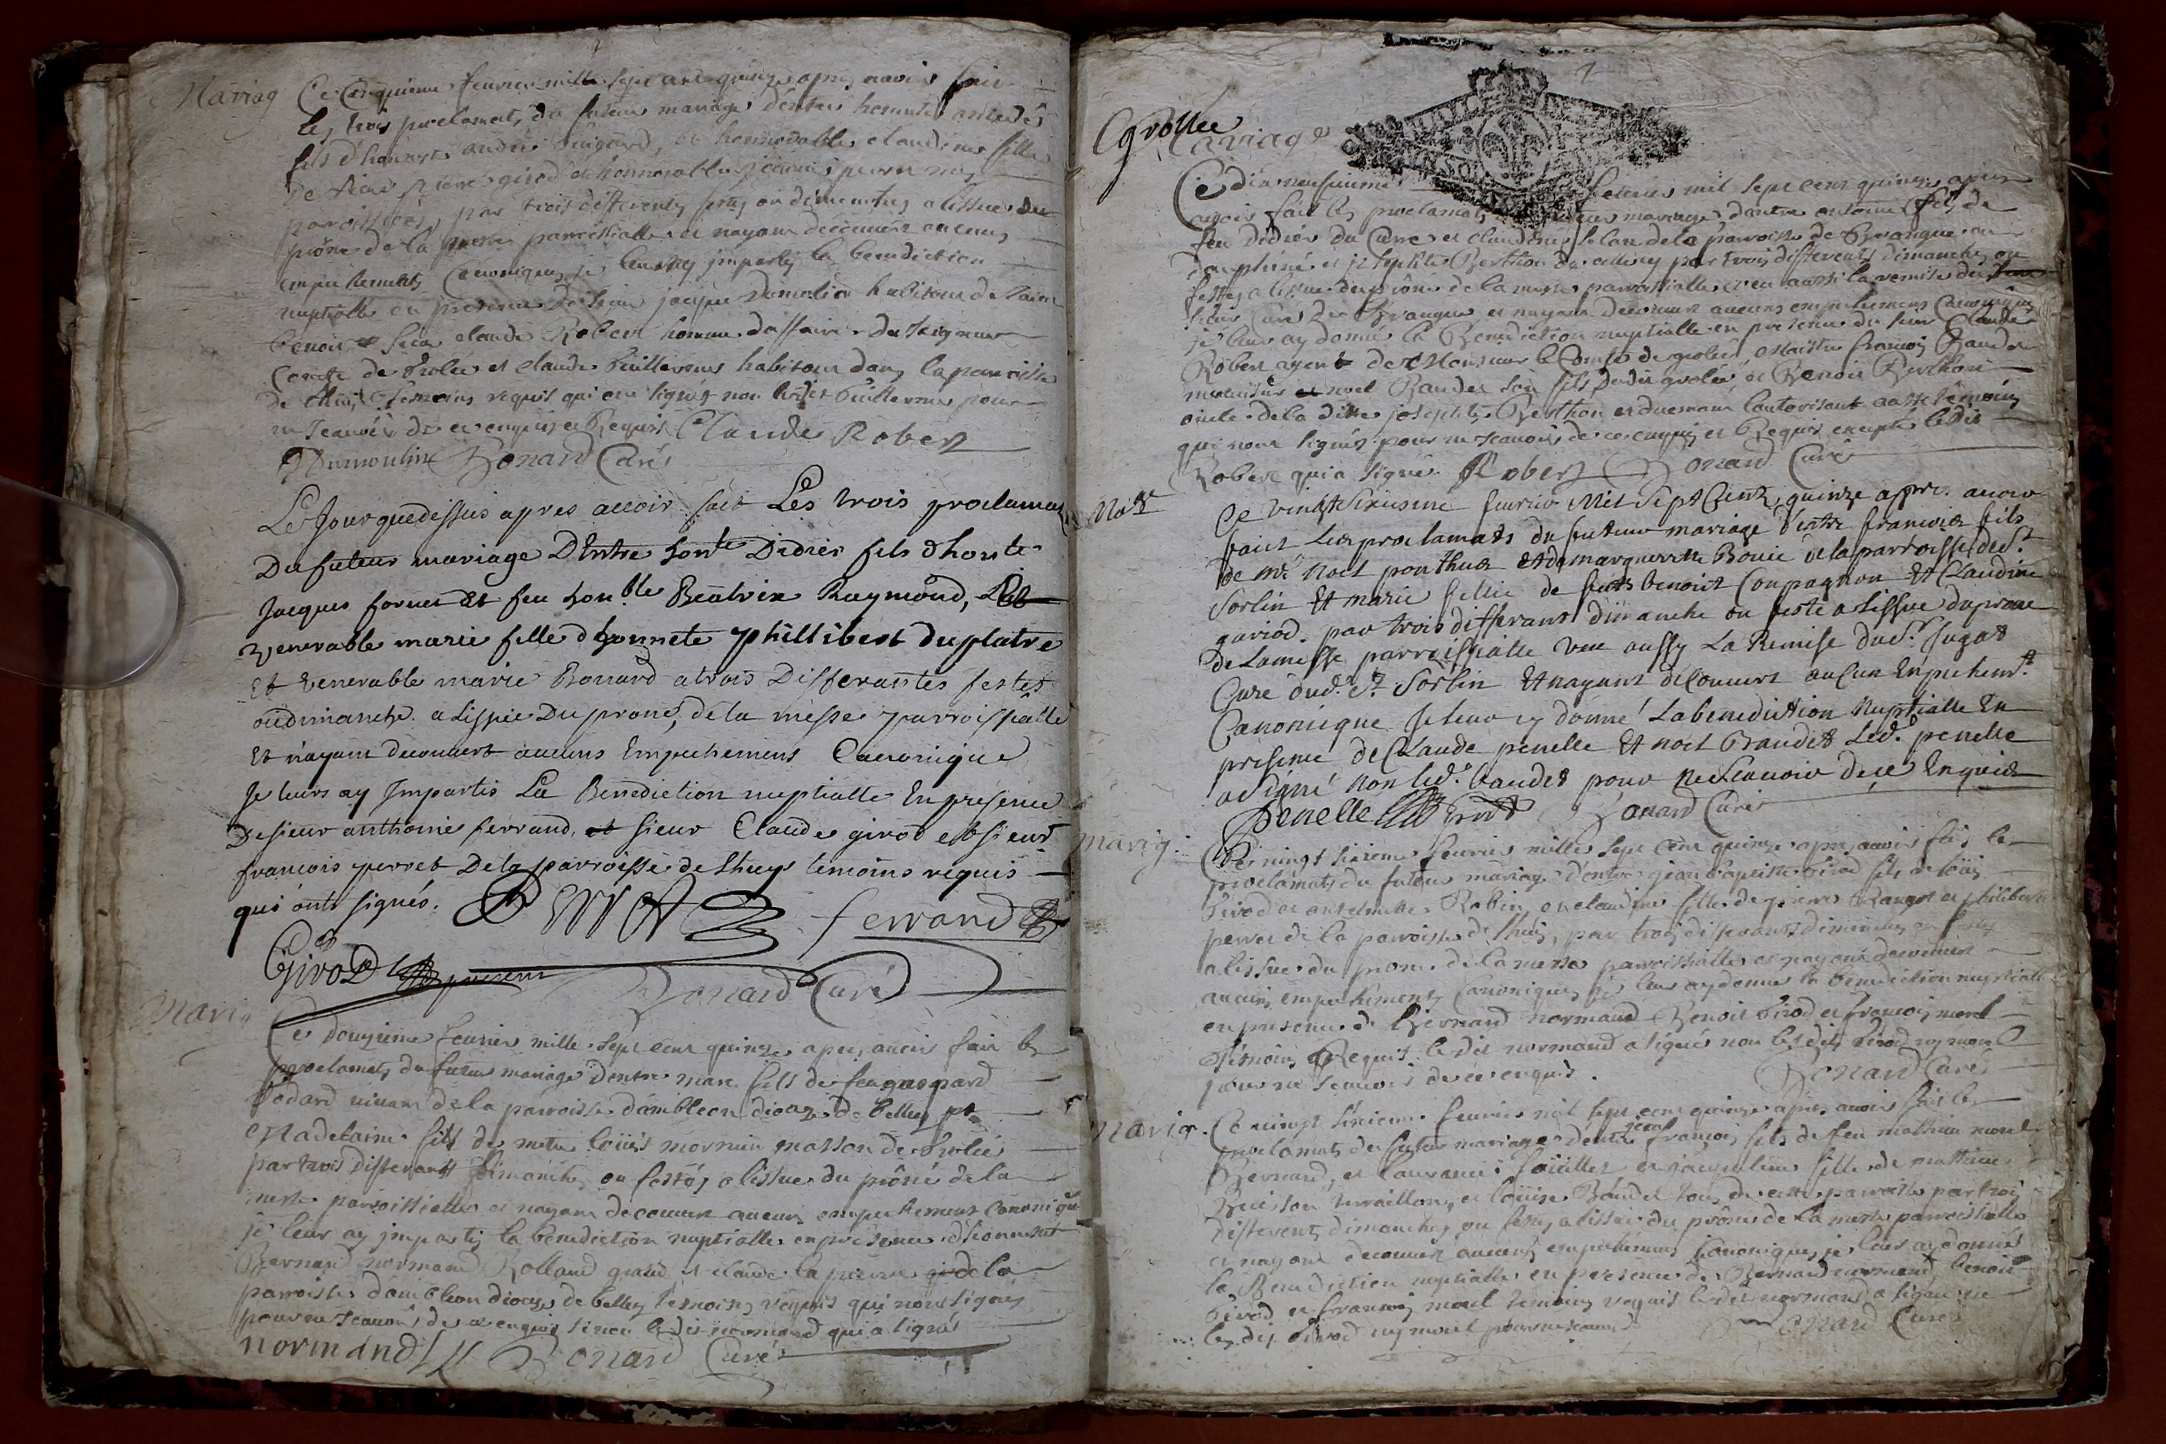 Mariag
Ce cinquieme feurier mille sept cent quinze apres auoir fait
les trois proclamats du futur mariage d'entre honneste
fils d'honneste andré et honnorable claudine fille
de sieur pierre girod et honnorable
paroissiens, par trois differents festes ou dimanches a lissue du
prône de la messe parroissialle et nayant decouuert aucuns
empechements Canoniques je leur ay imparty la benediction
nuptialle en presence de sieur jacque Dumolin habitant de Saint
benoit et sieur claude Robert homme d'affaire du seigneur
Comte de Grolée et claude Guillermus habitant dans la parroisse
de temoins requis qui ont signés non ledit Guillermus pour
ne scauoir de ce enquis et Requis Claude Robert
Dumoulin Bonard Curé
Le Jour quedessus apres auoir fait Les trois proclamas
Du futeur mariage DEntre honte Didier fils dhonte
Jacques fornet Et feu hon.ble Béatrix Raymond, Et
venerable marie fille dhonnete phillibert duplatre
Et venerable marie Bonard a trois Differantes festes
oudimanche a Lissue Du prone, de la messe parroissialle
Et n'ayant decouuert aucuns Empechemens Canonique
Je leurs ay Jmpartis La Benediction nuptialle En présence
De sieur anthoine ferrand, et sieur Claude girod et sieur
francois perret De la parroisse de Lhuys temoins requis
qui ônts signés. Perret ferrand
Girod present Bonard Curé
Mari
Ce douzieme feurier mille sept cent quinze apres auoir fait les
proclamats du futur mariage dentre marc fils de feu gaspard
Godard viuant de la parroisse d'ambleon diocaze de belley et
Madelaine fille de metre loüis mornieu masson de Grolée
par trois differants dimanches ou festes a lissue du prône de la
messe parroissialle et nayant decouuert aucuns empechement canonique
je leur ay imparty la benediction nuptialle en presence d'honneste
Bernard normand Rolland grand et claude lapierre de la
parroisse d'ambleon diocaze de belley temoins requis qui n'ont signés
pour ne scauoir de ce enquis sinon le dit normand qui a signé
normand Bonard Curé
Grollee
Mariage
Ce dix neufuieme feurier mil sept cent quinze apres
auoir fait les proclamats du futur mariage d'entre antoine fils de
feu Didier du Carre et claudine de la parroisse de Brangue en
dauphiné et josephte Berthon de cellecy par trois differents dimanches ou
festes a lissue du prône de la messe parroissialle et eu aussi la remise du
sieur Curé de Brangue et nayant decouuert aucuns empechemens Canoniques
je leur ay donné la Benediction nuptialle en presence du sieur Claude
Robert agent de Monsieur le Comte de grolée, Maistre francois Baudet
et noel Baudet son fils dudit grolée, et Benoit Berthon
oncle de la dite josephte Berthon et duement lautorisant temoins
qui nont signés pour ne scauoir de ce enquis et Requis excepté ledit
Robert qui a signé Robert Bonard Curé
Ma.ge
Ce vingt Sixiesme feurier Mil Sept Cent quinze appres auoir
faict Les proclamats du futeur mariage D'entre francois fils
de M.e Noel ponthus Et de marguerite Bouie de la parroisse de S.t
Sorlin Et marie fellie de feu benoict Compagnon Et Claudine
gariod. par trois differans dimanche ou feste a Lissue du prone
de Lamesse parroissialle veu aussy La Remise du S.r Jugat
Cure dud. S.t Sorlin Et nayant decouuert aucun Enpechem.t
Canonicque Je leur ay donné La benediction Nuptialle En
presence de Claude penelle Et noel Baudet Led. penelle
a Signé non led. baudet pour ne Scauoir de ce Enquis
Penelle Bonard Curé
mariag.
Ce vingt sixieme feurier mille sept cent quinze apres auoir fait les
proclamats du futur mariage d'entre jean baptiste Girod fils de loüis
Girod et antelmette Robin, et claudine fille de pierre et philiberte
perret de la parroisse de Lhuis, par trois differants dimanches ou festes
a lissue du prone de la messe parroissialle et nayant decouuert
aucuns empechements Canoniques je leur ay donné la benediction nuptialle
en presence de Bernard normand Benoit Girod et francois morel
temoins Requis le dit normand a signé non les dits Girod ny morel
pour ne scauoir de ce enquis. Bonard Curé
Mariag.
Ce vingt sixieme feurier mil sept cent quinze apres auoir fait les
proclamats du futur mariage d'entre jean francois fils de feu mathieu morel
Bernard, et laurence et jacqueline fille de matthieu
Buisson et loüise Baudet tous de cette parroisse par trois
differents dimanches ou festes a lissue du prône de la messe parroissialle
et nayant decouuert aucuns empechemens Canoniques je leur ay donné
la Benediction nuptialle en presence de Bernard normand, benoit
Girod et francois morel temoins requis le dit normand a signé non
les dits Girod ny morel pour ne scauoir Bonard Curé